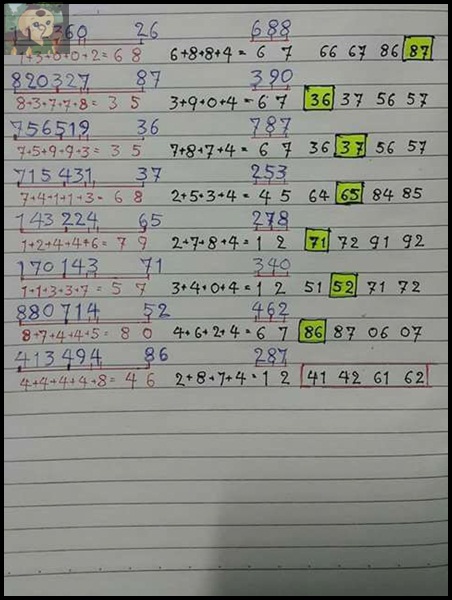 360 26 688
1+3+0+0+2=68 6+8+8+4=67 66 67 86 87
820327 87 390
8+3+7+7+8=35 3+9+0+4=67 36 37 56 57
756519 36 787
7+5+9+9+3=35 7+8+7+4=67 36 37 56 57
715431 37 253
7+4+1+1+3=68 2+5+3+4=45 64 65 84 85
143224 65 278
1+2+4+4+6=79 2+7+8+4=12 71 72 91 92
170143 71 340
1+1+3+3+7=57 3+4+0+4=12 51 52 71 72
880714 52 462
8+7+4+4+5=80 4+6+2+4=67 86 87 06 07
413494 86 287
4+4+4+4+8=46 2+8+7+4=12 41 42 61 62